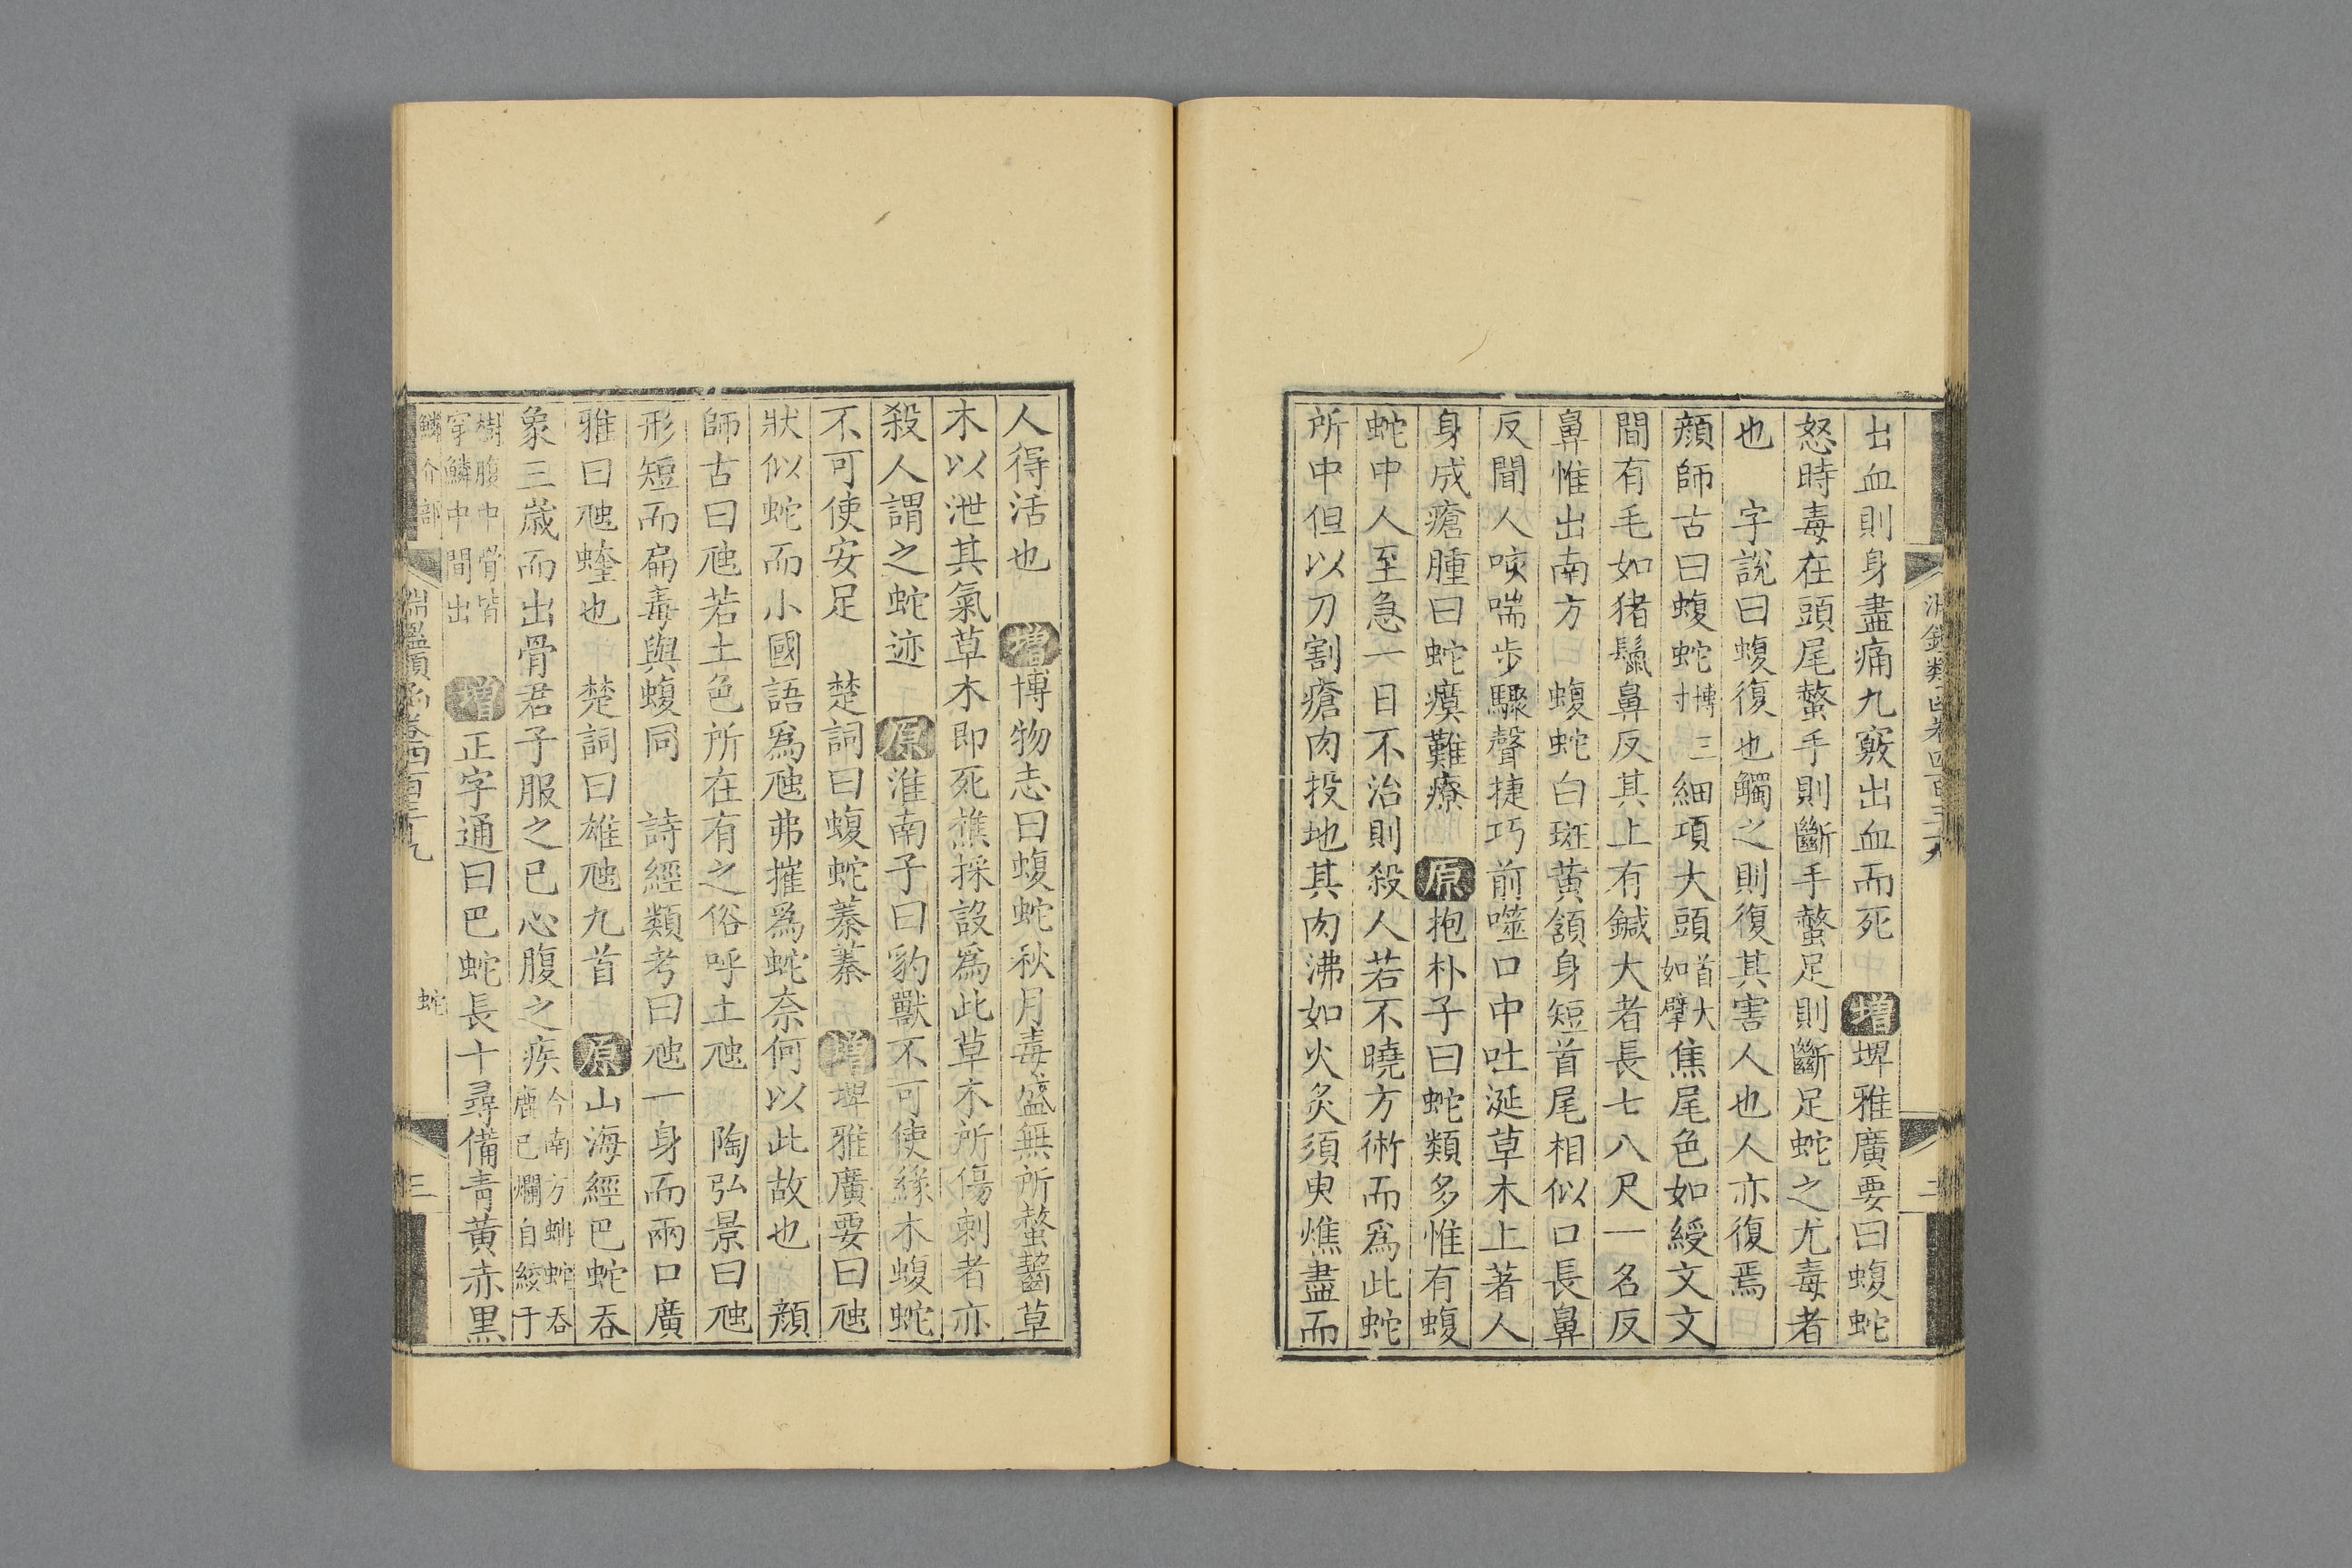 出血則身盡痛九竅出血而死 增 埤雅廣要曰蝮蛇
怒時毒在頭尾螫手則斷手螫足則斷足蛇之尤毒者
也 字說曰蝮復也觸之則復其害人也人亦復焉
顔師古曰蝮蛇博三寸細項大頭首大如擘焦尾色如綬文文
間有毛如猪鬛鼻反其上有鍼大者長七八尺一名反
鼻惟出南方 蝮蛇白斑黄頷身短首尾相似口長鼻
反聞人咳喘步驟聲捷巧前噬口中吐涎草木上著人
身成瘡腫曰蛇瘼難療 原 抱朴子曰蛇類多惟有蝮
蛇中人至急一日不治則殺人若不曉方術而爲此蛇
所中但以刀割瘡肉投地其肉沸如火炙須臾燋盡而
人得活也 增 博物志曰蝮蛇秋月毒盛無所螫齧草
木以泄其氣草木即死樵採設爲此草木所傷刺者亦
殺人謂之蛇迹 原 淮南子曰豹獸不可使緣木蝮蛇
不可使安足 楚詞曰蝮蛇蓁蓁 增 埤雅廣要曰虺
狀似蛇而小國語爲虺弗摧爲蛇奈何以此故也 顔
師古曰虺若土色所在有之俗呼土虺 陶弘景曰虺
形短而扁毒與蝮同 詩經類考曰虺一身而兩口廣
雅曰虺蝰也 楚詞曰雄虺九首 原 山海經巴蛇吞
象三歲而出骨君子服之已心腹之疾今南方蚺蛇吞鹿已爛自絞于
樹腹中骨皆穿鱗中間出 增 正字通曰巴蛇長十尋備靑黄赤黒
鱗介部 淵鑑類函卷四百三十九 蛇 三